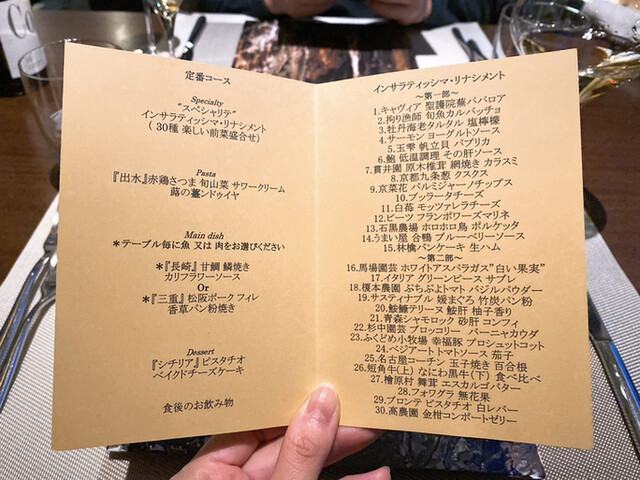 定番コース
Specialty
"スペシャリテ"
インサラティッシマ・リナシメント
( 30種 楽しい前菜盛合せ)
Pasta
『出水』赤鶏さつま 旬山菜 サワークリーム
蕗の薹ンドゥイヤ
Main dish
＊テーブル毎に魚 又は 肉をお選びください
＊『長崎』甘鯛 鱗焼き
カリフラワーソース
Or
＊『三重』松阪ポーク フィレ
香草パン粉焼き
Dessert
『シチリア』ピスタチオ
ベイクドチーズケーキ
食後のお飲み物
インサラティッシマ・リナシメント
～第一部～
1.キャヴィア 聖護院蕪ババロア
2.拘り漁師 旬魚カルパッチョ
3.牡丹海老タルタル 塩檸檬
4.サーモン ヨーグルトソース
5.玉雫 帆立貝 パプリカ
6.鮑 低温調理 その肝ソース
7.貫井園 原木椎茸 網焼き カラスミ
8.京都九条葱 クスクス
9.京菜花 パルミジャーノチップス
10.ブッラータチーズ
11.白苺 モッツァレラチーズ
12.ビーツ フランボワーズマリネ
13.石黒農場 ホロホロ鳥 ポルケッタ
14.うまい屋 合鴨 ブルーベリーソース
15.林檎パンケーキ 生ハム
～第二部～
16.馬場園芸 ホワイトアスパラガス"白い果実"
17.イタリア グリーンピース サブレ
18.榎本農園 ぷちぷよトマト バジルパウダー
19.サスティナブル 媛まぐろ 竹炭パン粉
20.鮟鱇テリーヌ 鮟肝 柚子香り
21.青森シャモロック 砂肝 コンフィ
22.杉中園芸 ブロッコリー バーニャカウダ
23.ふくどめ小牧場 幸福豚 プロシュットコット
24.ベジアート トマトソース 茄子
25.名古屋コーチン 玉子焼き 百合根
26.短角牛(上) なにわ黒牛(下) 食べ比べ
27.檜原村 舞茸 エスカルゴバター
28.フォワグラ 無花果
29.ブロンテ ピスタチオ 白レバー
30.高農園 金柑コンポートゼリー